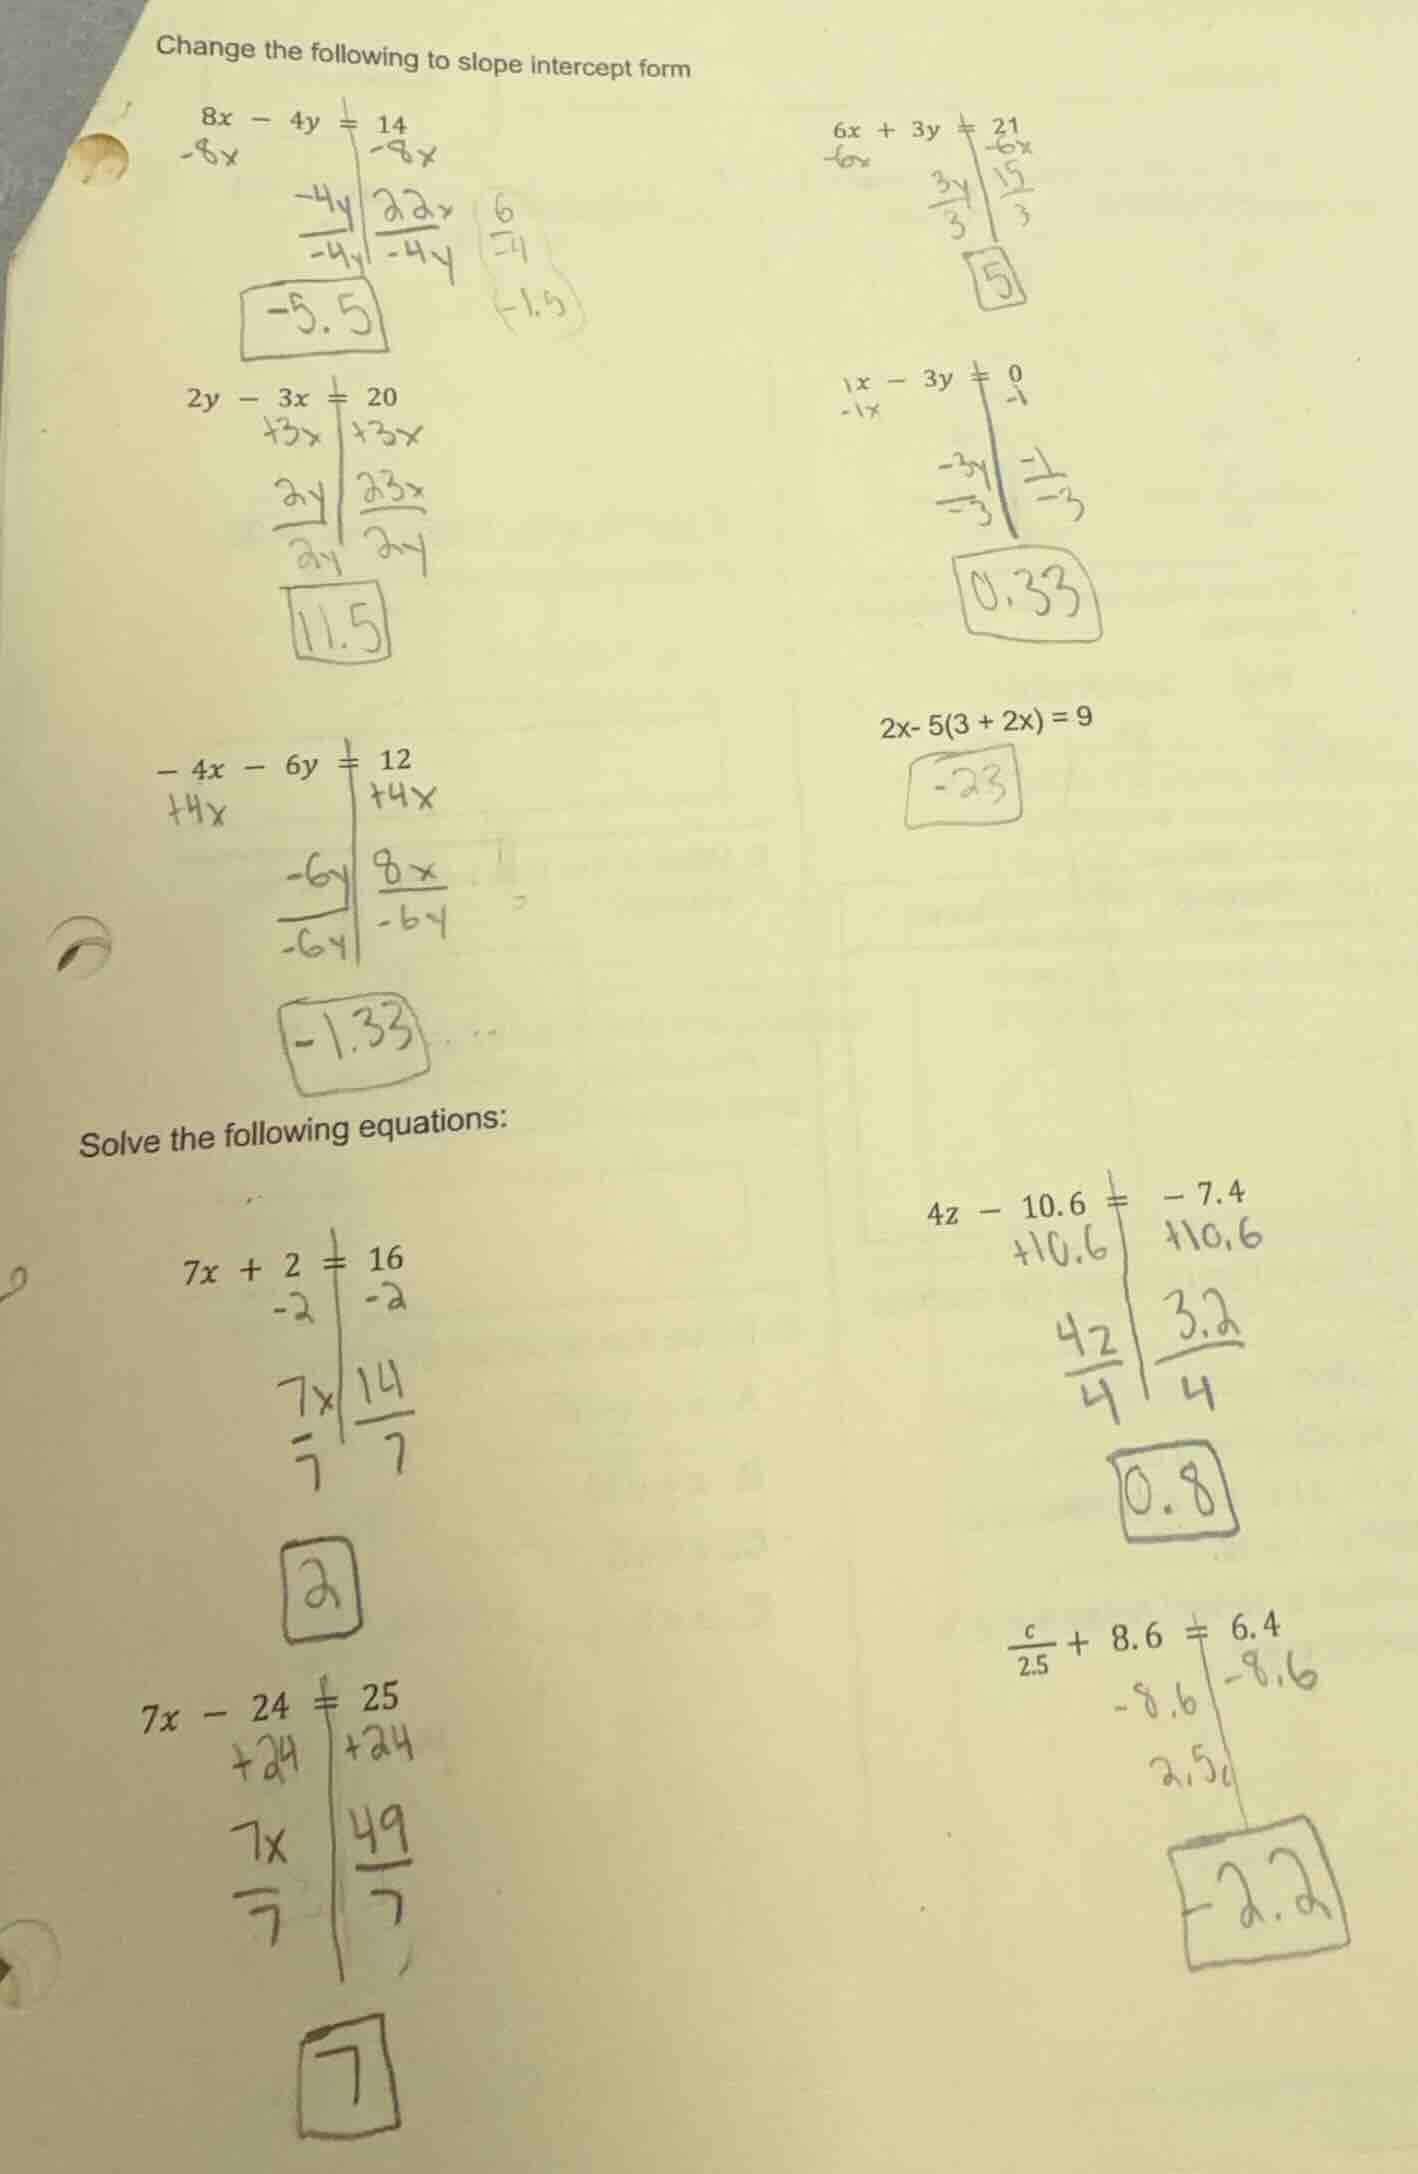 Change the following to slope intercept form
8x − 4y = 14
-8x -8x
-4y 22x 6
-4y -4y -4
-5.5 -1.5
6x + 3y = 21
-6x -6x
3y 15
3 3
5
2y − 3x = 20
+3x +3x
2y 23x
2y 2y
11.5
1x − 3y = 0
-1x -1
-3y -1
-3 -3
0.33
− 4x − 6y = 12
+4x +4x
-6y 8x
-6y -6y
-1.33
2x- 5(3 + 2x) = 9
-23
Solve the following equations:
7x + 2 = 16
-2 -2
7x 14
7 7
2
4z − 10.6 = − 7.4
+10.6 +10.6
4z 3.2
4 4
0.8
7x − 24 = 25
+24 +24
7x 49
7 7
7
c/2.5 + 8.6 = 6.4
-8.6 -8.6
2.5c
-2.2